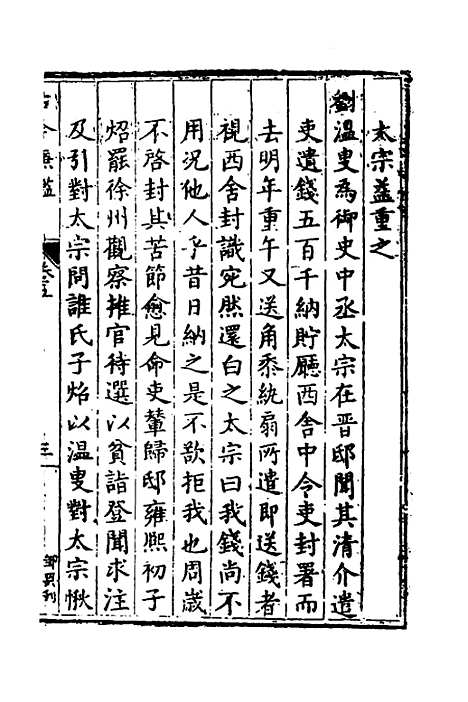 太宗益重之
劉温叟為御史中丞太宗在晋邸聞其清介遣
吏遺錢五百千納貯廳西舍中令吏封署而
去明年重午又送角黍紈扇所遣即送錢者
視西舍封識宛然還白之太宗曰我錢尚不
用況他人乎昔日納之是不欲拒我也周歲
不啓封其苦節愈見命吏輦歸邸雍熙初子
炤罷徐州觀察推官待選以貧詣登聞求注
及引對太宗問誰氏子炤以温叟對太宗愀
古今廉鑑
卷五
三